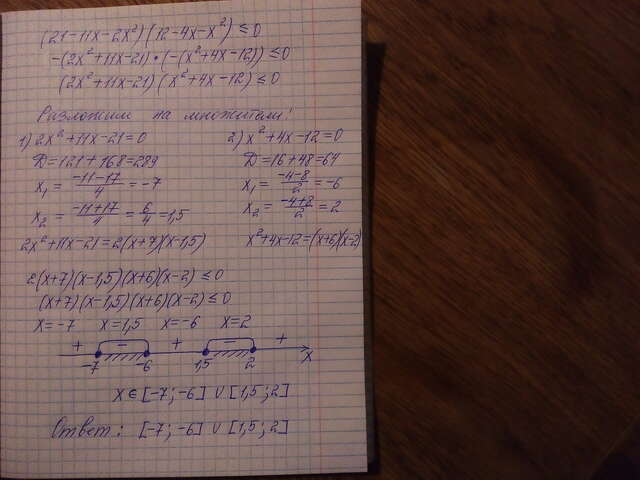 (21-11x-2x²)(12-4x-x²)≤0
-(2x²+11x-21)·(-(x²+4x-12))≤0
(2x²+11x-21)(x²+4x-12)≤0
Разложим на множители:
1) 2x²+11x-21=0
D=121+168=289
x₁ = (-11-17)/4 = -7
x₂ = (-11+17)/4 = 6/4 = 1,5
2x²+11x-21=2(x+7)(x-1,5)
2) x²+4x-12=0
D=16+48=64
x₁ = (-4-8)/2 = -6
x₂ = (-4+8)/2 = 2
x²+4x-12=(x+6)(x-2)
2(x+7)(x-1,5)(x+6)(x-2)≤0
(x+7)(x-1,5)(x+6)(x-2)≤0
x=-7 x=1,5 x=-6 x=2
+ - + - +
-7 -6 1,5 2 x
x∈[-7;-6]∪[1,5;2]
Ответ: [-7;-6]∪[1,5;2]